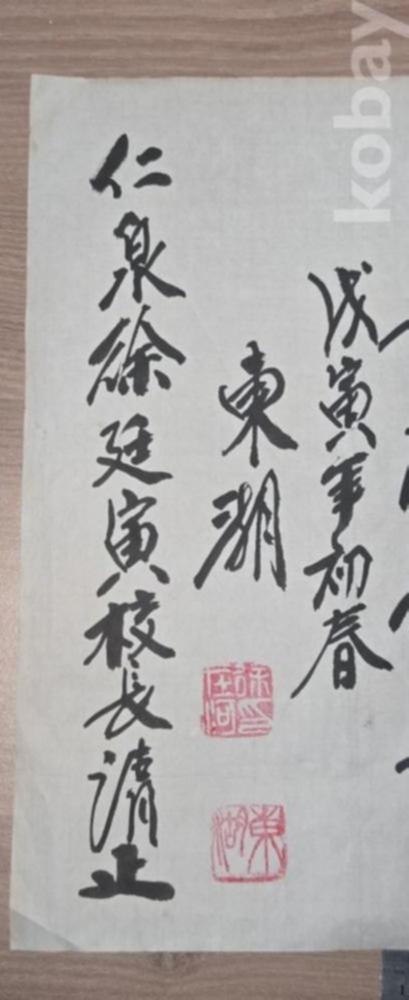 戊寅年初春
東湖
仁泉徐廷寅校長清正
東湖
kobay